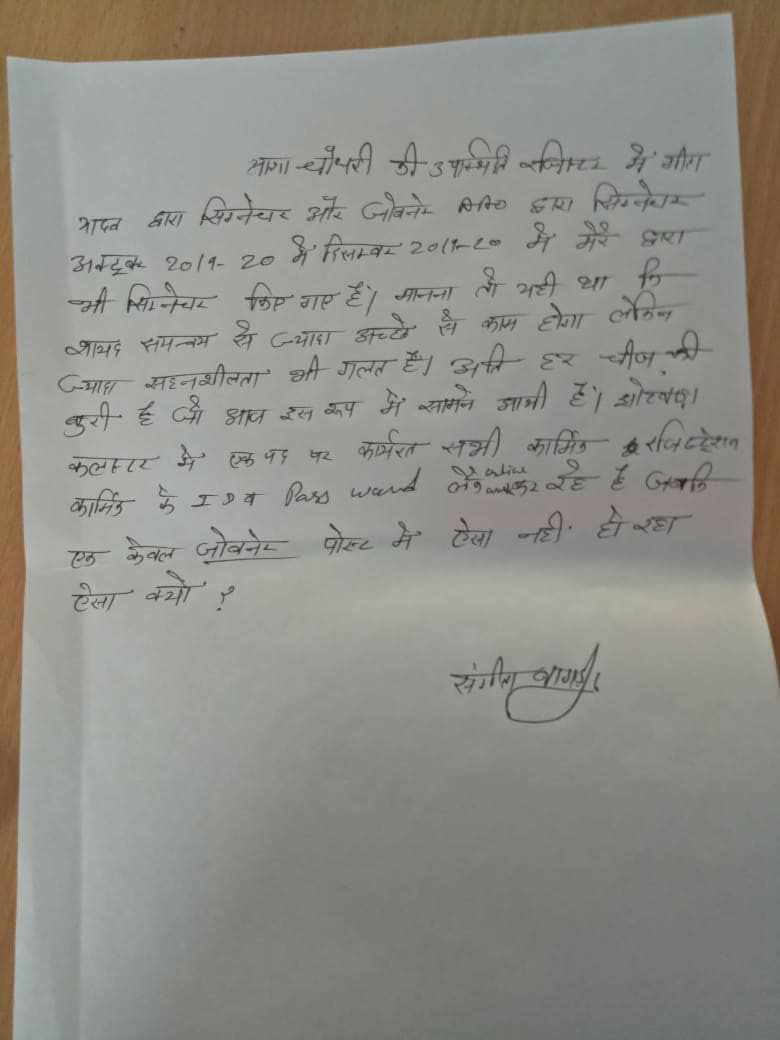 चौधरी की उपस्थिति रजिस्टर में गीता
यादव द्वारा सिग्नेचर और जोबनेर द्वारा सिग्नेचर
अक्टूबर 2019-20 में दिसम्बर 2019-20 में मेरे द्वारा
भी सिग्नेचर किए गए हैं। मानना तो यही था कि
शायद समन्वय से ज्यादा अच्छे से काम होगा लेकिन
ज्यादा सहनशीलता भी गलत है। अति हर चीज की
बुरी है जो आज इस रूप में सामने आयी है।
कलस्टर में एक पद पर कार्यरत सभी कार्मिक
कार्मिक के ID व Pass word लेकर रहे है जबकि
एक केवल जोबनेर पोस्ट में ऐसा नहीं हो रहा
ऐसा क्यों ?
संगीता